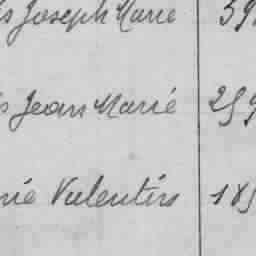 Joseph Marie 39
Jean Marie 259
Valentin 185